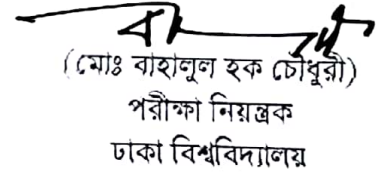 (মোঃ বাহালুল হক চৌধুরী)
পরীক্ষা নিয়ন্ত্রক
ঢাকা বিশ্ববিদ্যালয়